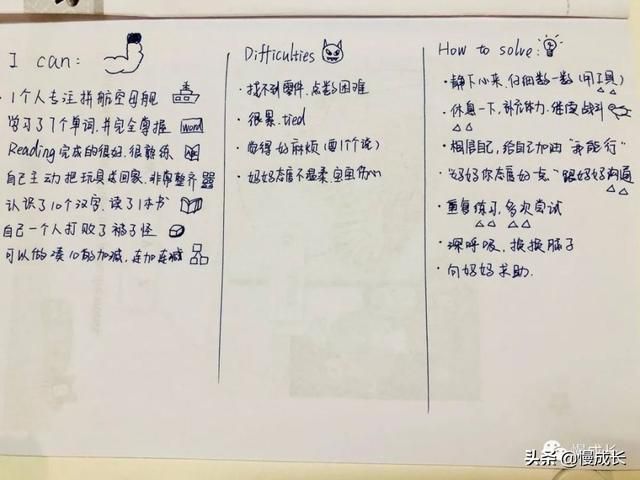 I can:
1个人专注拼航空母舰
学习了7个单词,并完全掌握 word
Reading完成的很好.很熟练
自己主动把玩具送回家.非常整齐
认识了10个汉字.读了1本书
自己一个人打败了被子怪
可以做凑10的加减,连加连减
Difficulties
· 找不到零件.点数困难
· 很累.tied
· 觉得好麻烦(要1个个读)
· 妈妈态度不温柔.宝宝伤心
How to solve:
· 静下心来,仔细数一数(用工具)
· 休息一下,补充体力.继续战斗
· 相信自己,给自己加油“我能行”
· “妈妈你态度好一点”跟妈妈沟通
· 重复练习,多次尝试
· 深呼吸.换换脑子
· 向妈妈求助.
慢成长
头条 @慢成长